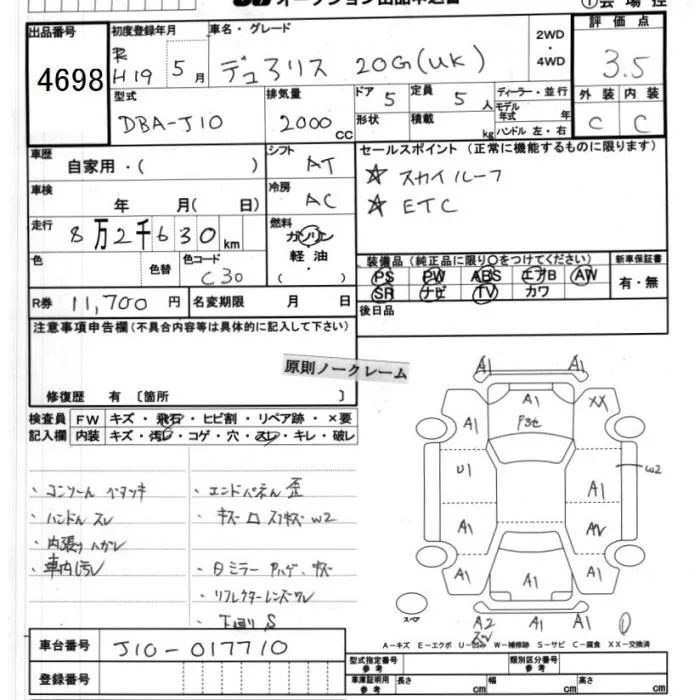 オークション出品申込書
①会場控
出品番号 4698
初度登録年月 R H19 5月
車名・グレード デュアリス 20G(UK)
2WD・4WD
評価点 3.5
型式 DBA-J10
排気量 2000 CC
ドア 5 定員 5 人
形状 積載 kg
ディーラー・並行
モデル年式 年
ハンドル 左・右
外装 C 内装 C
車歴 自家用・( )
シフト AT
セールスポイント (正常に機能するものに限ります)
☆ スカイルーフ
☆ ETC
車検 年 月( 日)
冷房 AC
走行 8万2千630km
燃料 ガソリン 軽油 ( ・ )
色 色替 色コード C30
装備品 (純正品に限り○をつけてください)
PS PW ABS エアB AW
SR ナビ TV カワ
新車保証書 有・無
R券 11,700円 名変期限 月 日
後日品
注意事項申告欄(不具合内容等は具体的に記入して下さい)
原則ノークレーム
修復歴 有 〔箇所 〕
検査員記入欄
FW キズ・飛石・ヒビ割・リペア跡・×要
内装 キズ・汚レ・コゲ・穴・スレ・キレ・破レ
・コンソール ベタツキ
・ハンドル スレ
・内張り ハガレ
・車内汚レ
・エンドパネル 歪
・キズ ロ W2
・日ミラー ハゲ、キズ
・リフレクターレンズワレ
・下回り S
A1 A1
A1 XX
A1 F3セ
U1 W2
A1
A1 AW
A1 A1 A1
スペア
A2 A1 A1 ①
スレ
A-キズ E-エクボ U-凹み W-補修跡 S-サビ C-腐食 XX-交換済
車台番号 J10-017710
登録番号
型式指定番号 参考
類別区分番号 参考
車庫証明用 参考 長さ cm 幅 cm 高さ cm